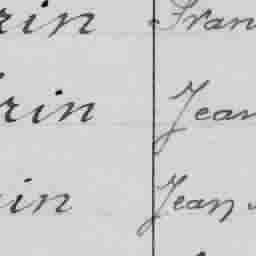 rin Fran
rin Jean
in Jean